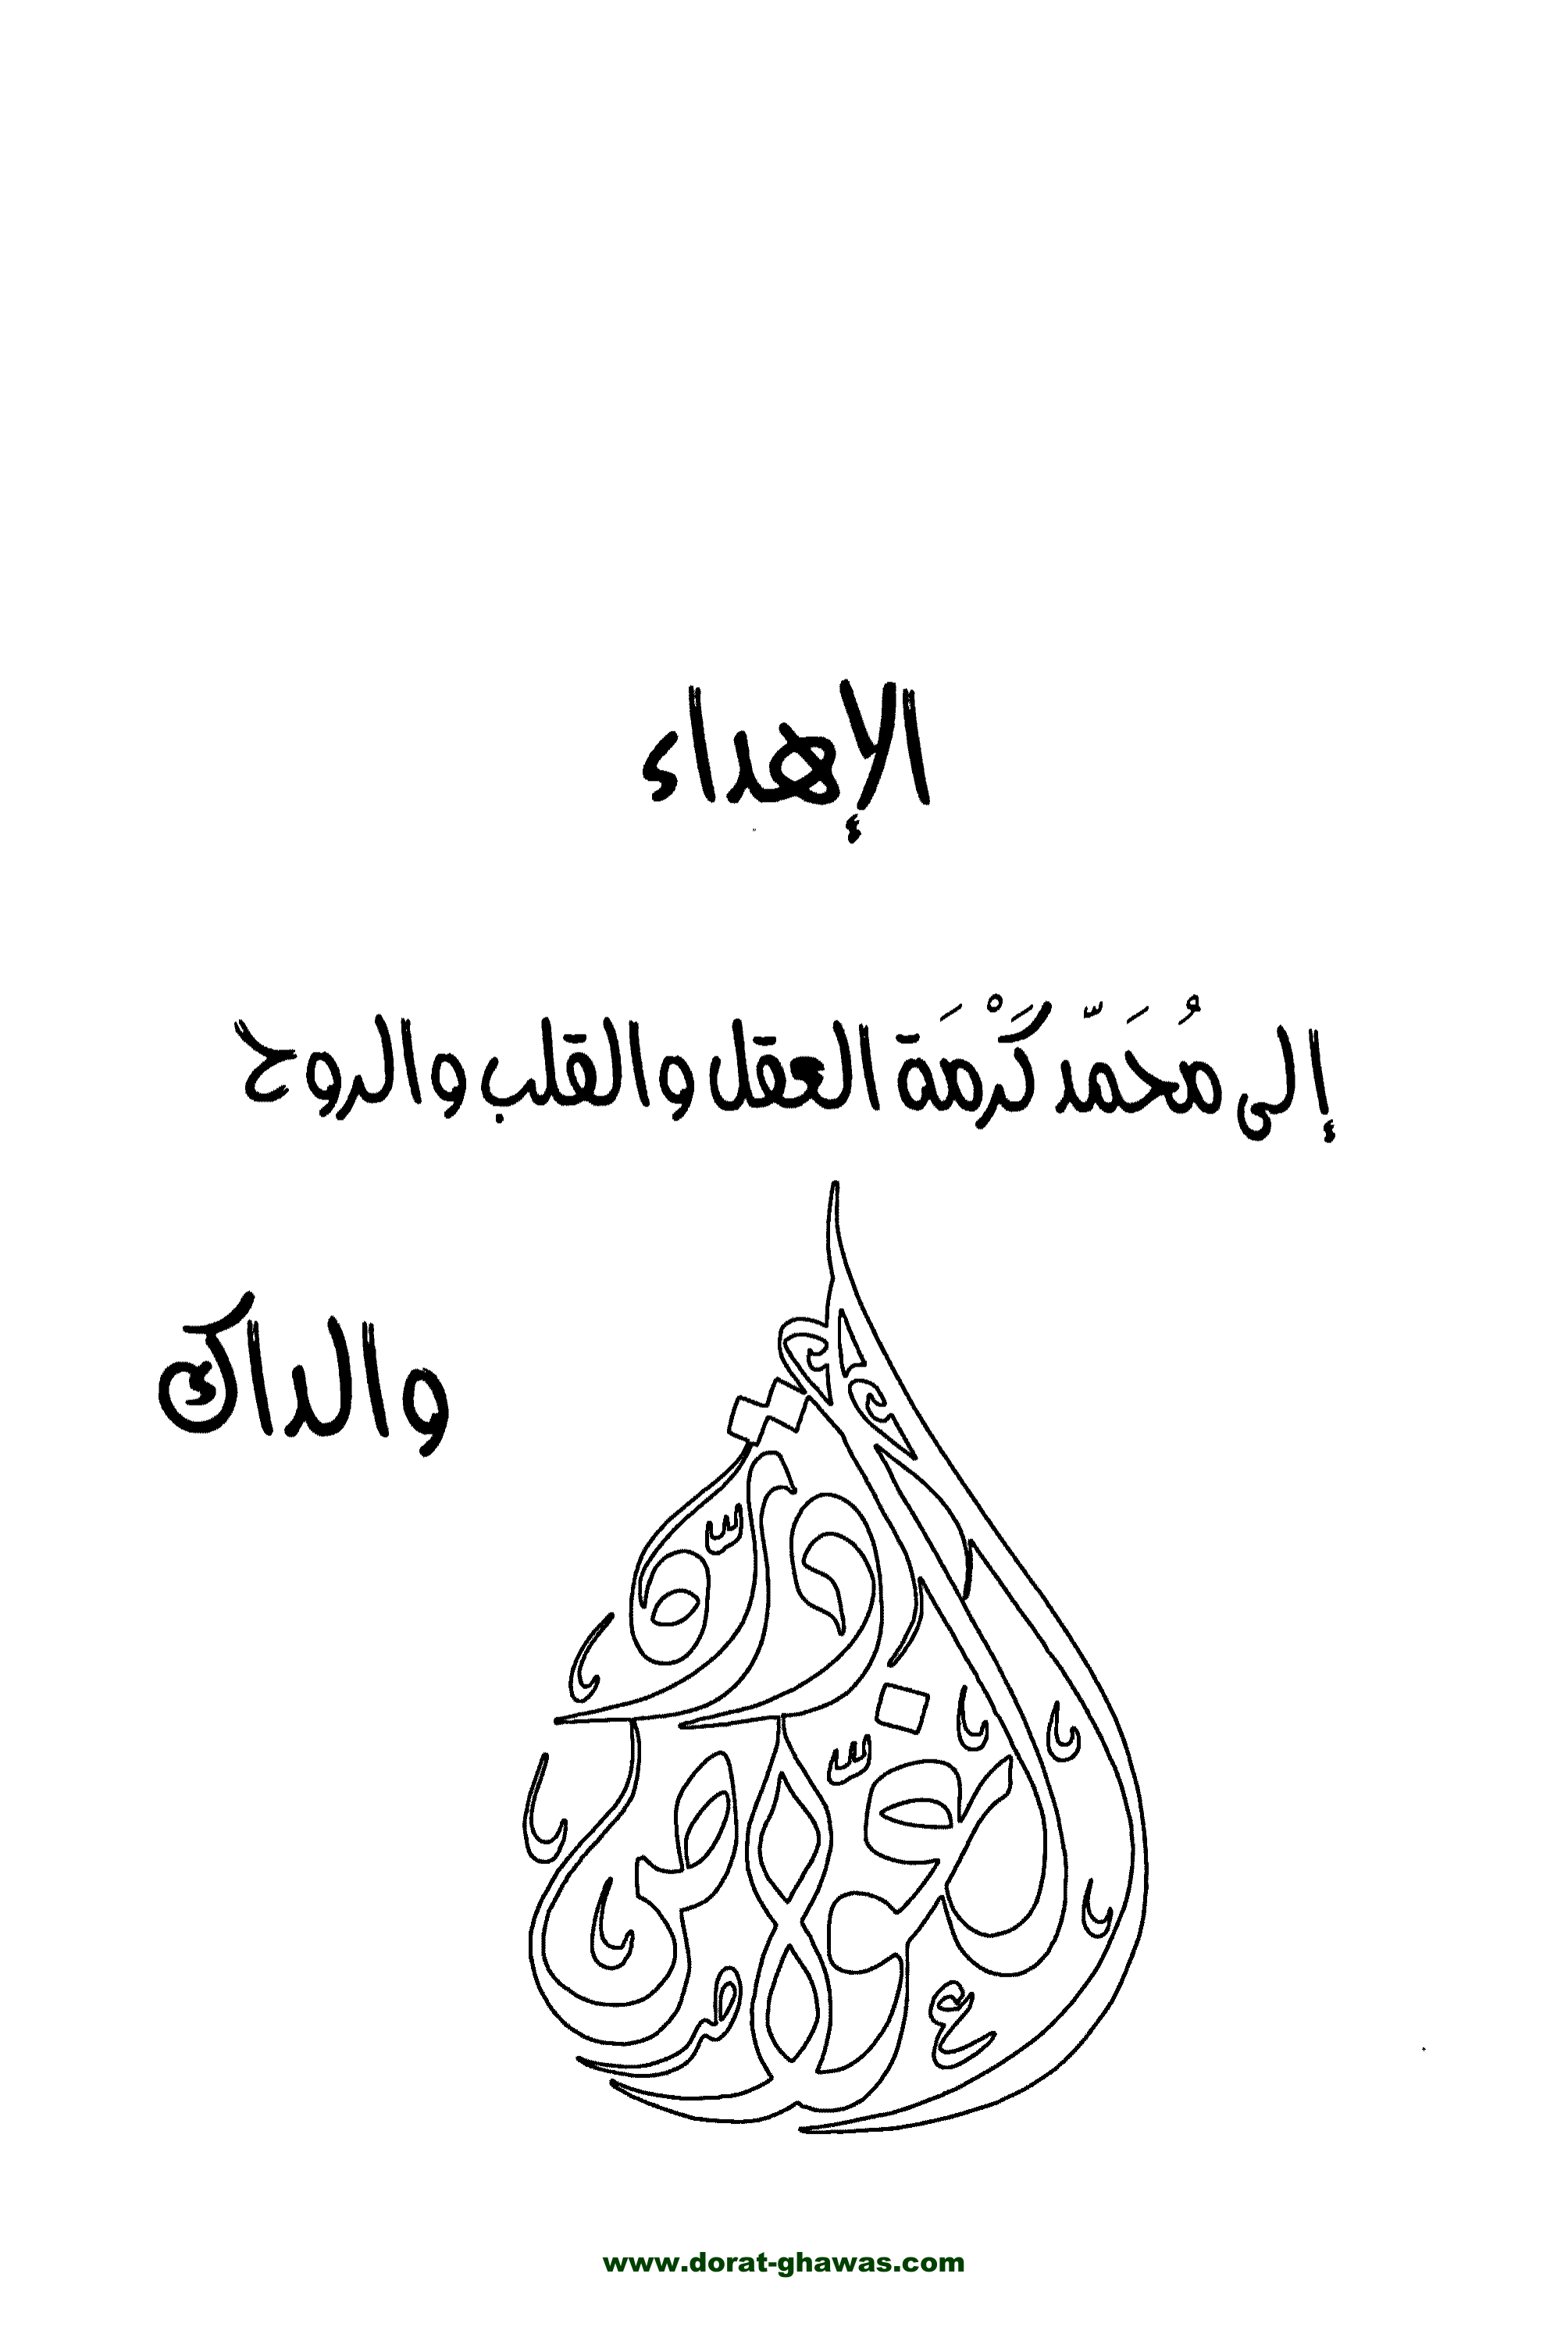 الإهداء
إلى مُحَمّد كَرْمَة العقل والقلب والروح
والداك
www.dorat-ghawas.com